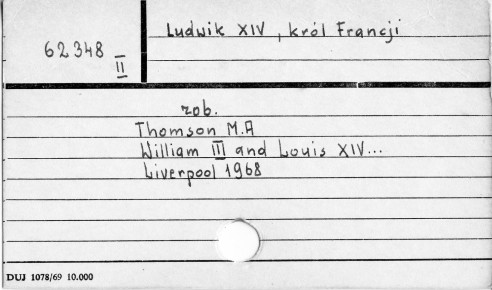 Ludwik XIV, król Francji
62348
II
zob.
Thomson M.A
William III and Louis XIV...
Liverpool 1968
DUJ 1078/69 10.000